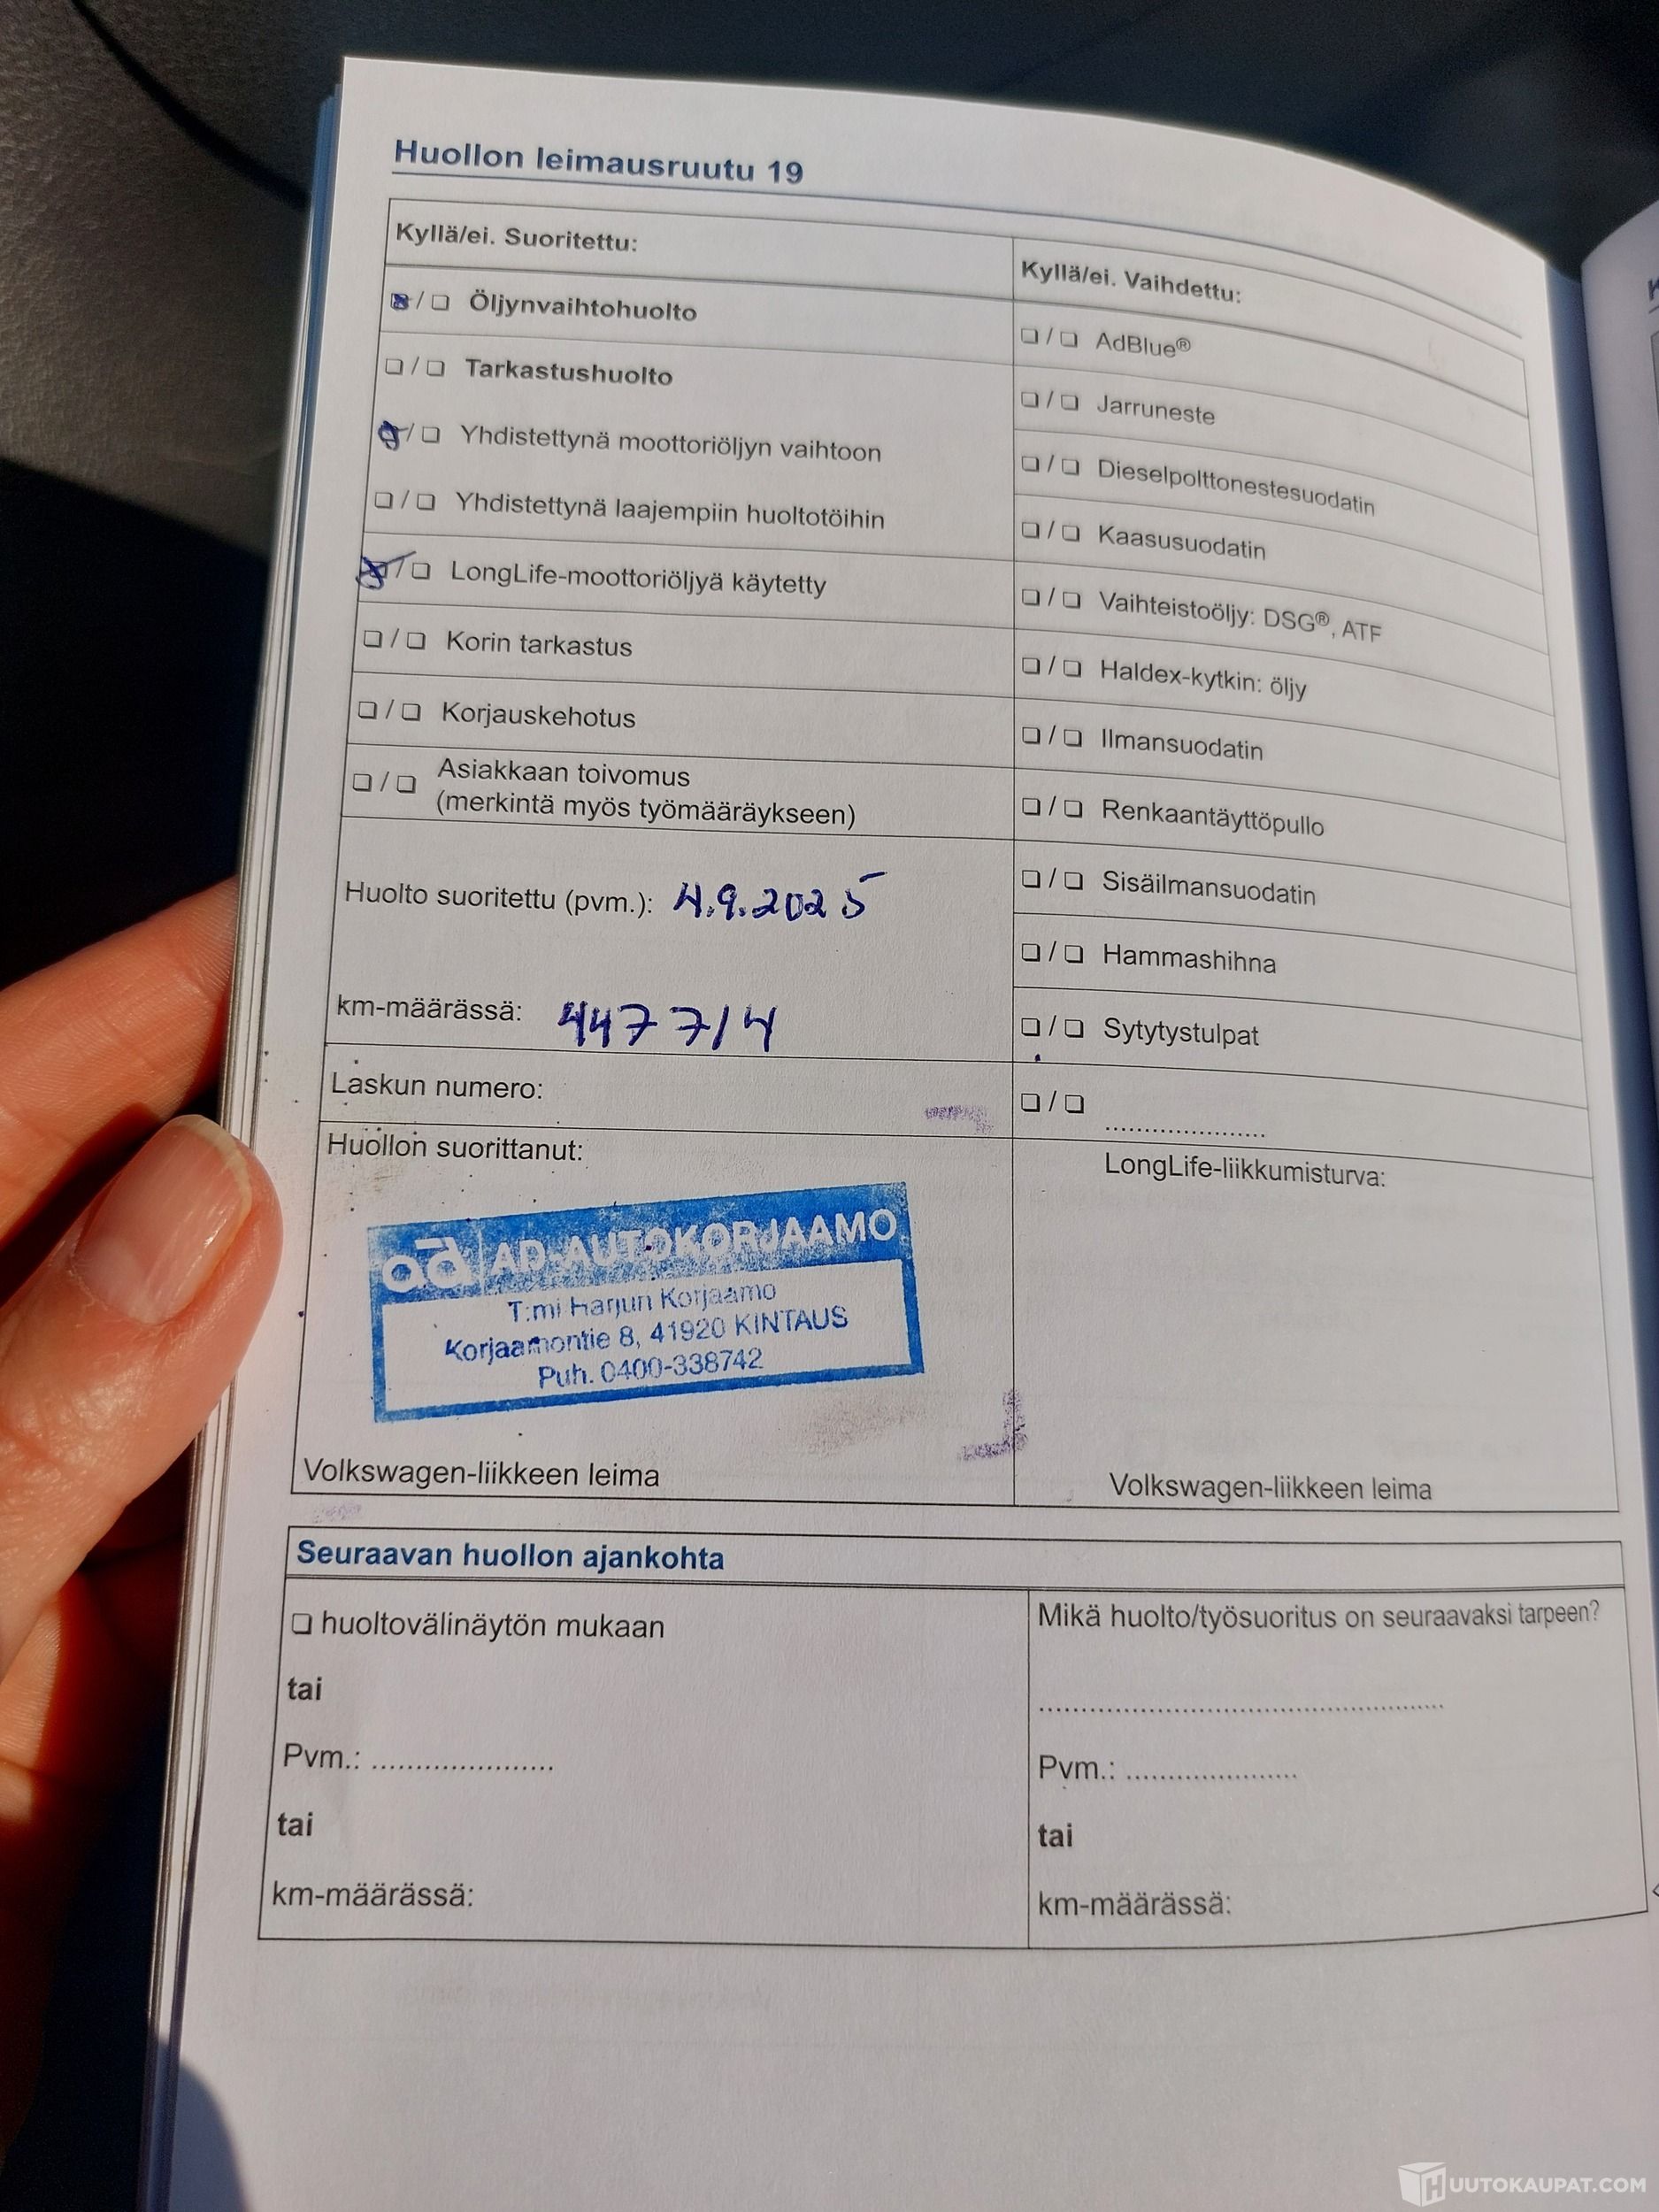 Huollon leimausruutu 19
Kyllä/ei. Suoritettu:
❏ / ❏ Öljynvaihtohuolto
❏ / ❏ Tarkastushuolto
❏ / ❏ Yhdistettynä moottoriöljyn vaihtoon
❏ / ❏ Yhdistettynä laajempiin huoltotöihin
❏ / ❏ LongLife-moottoriöljyä käytetty
❏ / ❏ Korin tarkastus
❏ / ❏ Korjauskehotus
❏ / ❏ Asiakkaan toivomus
(merkintä myös työmääräykseen)
Huolto suoritettu (pvm.): 4.9.2025
km-määrässä: 447714
Laskun numero:
Huollon suorittanut:
ad AD-AUTOKORJAAMO
T:mi Harjun Korjaamo
Korjaamontie 8, 41920 KINTAUS
Puh. 0400-338742
Volkswagen-liikkeen leima
Kyllä/ei. Vaihdettu:
❏ / ❏ AdBlue®
❏ / ❏ Jarruneste
❏ / ❏ Dieselpolttonestesuodatin
❏ / ❏ Kaasusuodatin
❏ / ❏ Vaihteistoöljy: DSG®, ATF
❏ / ❏ Haldex-kytkin: öljy
❏ / ❏ Ilmansuodatin
❏ / ❏ Renkaantäyttöpullo
❏ / ❏ Sisäilmansuodatin
❏ / ❏ Hammashihna
❏ / ❏ Sytytystulpat
❏ / ❏ ......................
LongLife-liikkumisturva:
Volkswagen-liikkeen leima
Seuraavan huollon ajankohta
❏ huoltovälinäytön mukaan
tai
Pvm.: ........................
tai
km-määrässä:
Mikä huolto/työsuoritus on seuraavaksi tarpeen?
......................................................
Pvm.: .......................
tai
km-määrässä:
HUUTOKAUPAT.COM